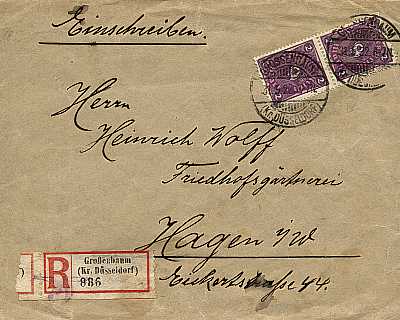 Einschreiben.
GROSSENBAUM
(KR. DÜSSELDORF)
Herrn
Heinrich Wolff
Friedhofsgärtnerei
Hagen i/W
Eckertstraße 44.
R
Großenbaum
(Kr. Düsseldorf)
986